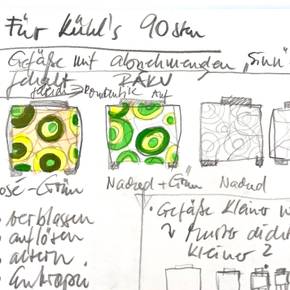 Für Kühl's 90sten
Gefäße mit abnehmenden „Sinn"-
gehalt RAKU
Rosé-Grün Nacred+Grün Nacred
• verblassen
• auflösen
• altern
• Entropi
• Gefäße kleiner w
↓ Muster dicht
kleiner?